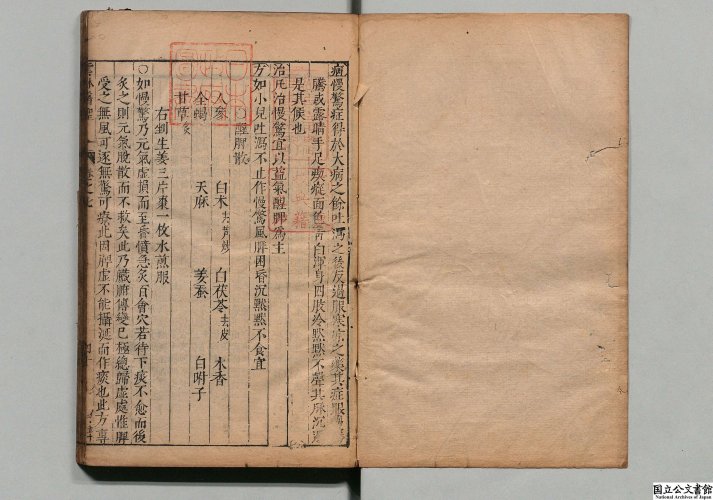 病慢驚症得於大病之餘吐瀉之後反過服寒凉之藥其症眼
騰或露睛手足瘈瘲面色青白渾身四肢冷默默不聲其脉沉
是其候也
治凡治慢驚宜以益氣醒脾為主
方如小兒吐瀉不止作慢驚風脾困昏沉默默不食宜
○醒脾散
人參 白术 白茯苓去皮 木香
全蝎 天麻 姜蚕 白附子
甘草
右剉生姜三片棗一枚水煎服
○如慢驚乃元氣虛損而至昏憒急灸百會穴若待下痰不愈而後
灸之則元氣脫散而不救矣此乃臟腑傳變已極總歸虛處惟脾
受之無風可逐無驚可療此因脾虛不能攝涎而作痰也此方專
卷之七
国立公文書館
National Archives of Japan